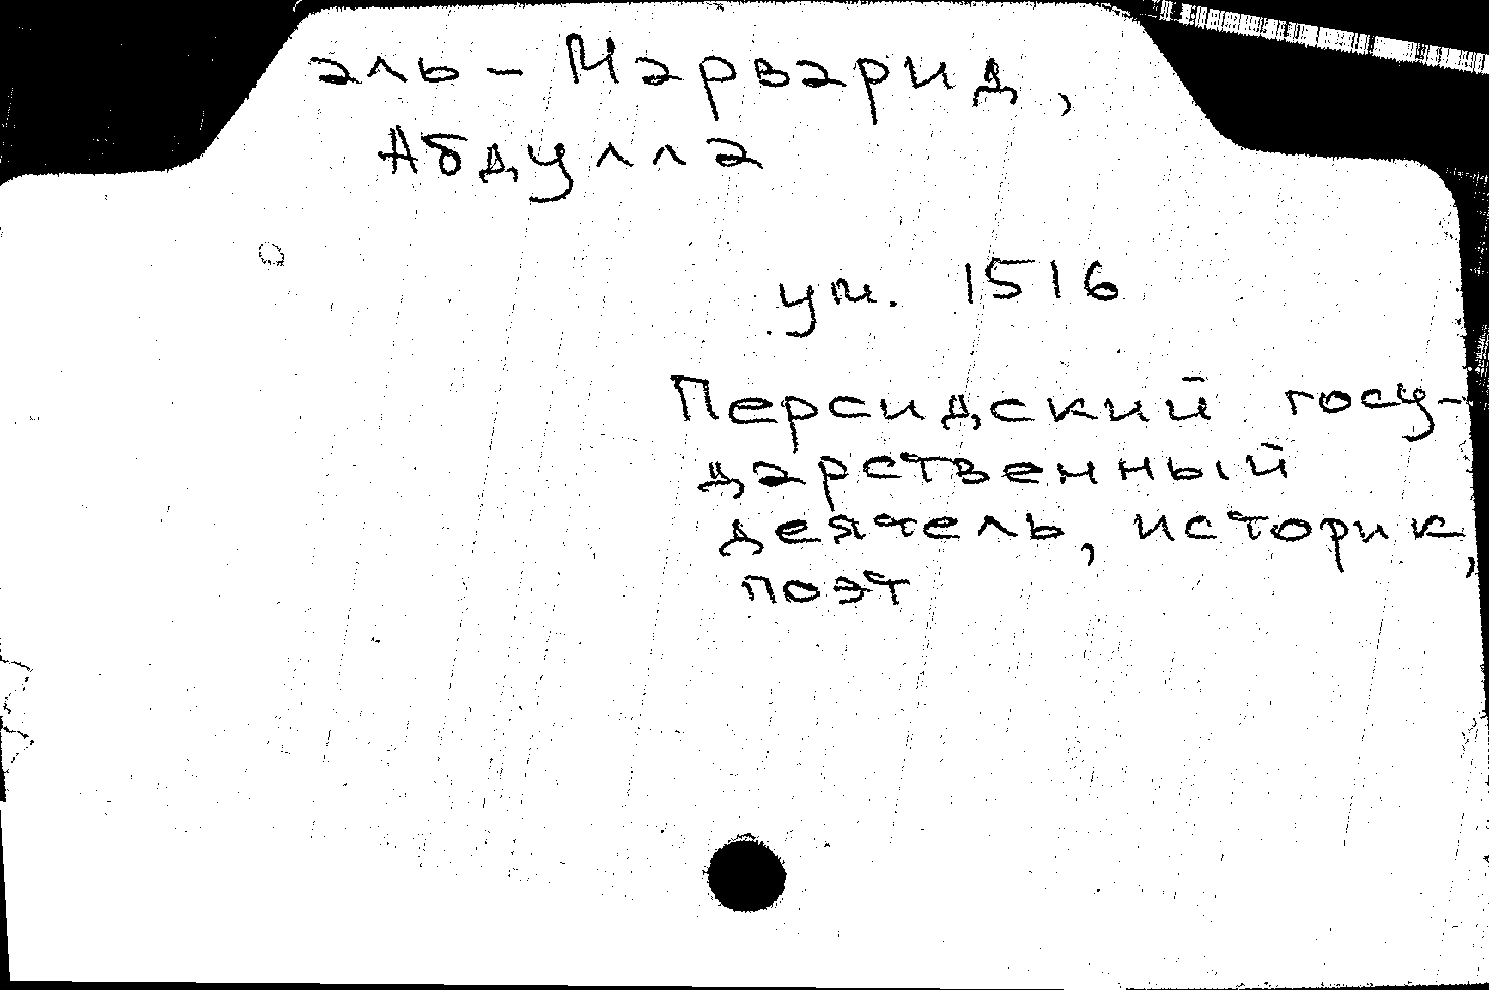 аль-Марварид,
Абдулла
ум. 1516
Персидский госу-
дарственный
деятель, историк,
поэт